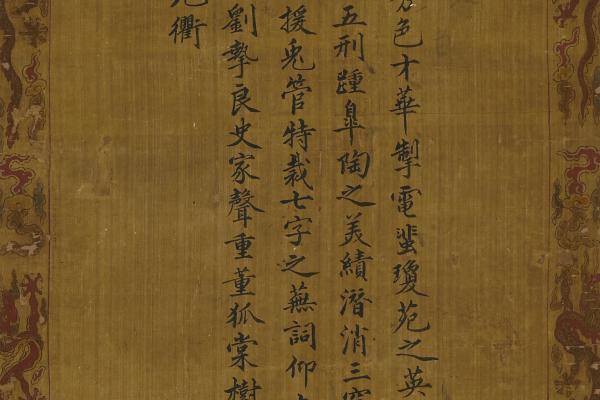 色才華掣電蜚瓊苑之英
五刑踵皐陶之美績潛消三
援兎管特裁七字之蕪詞仰
劉摯良史家聲重董狐棠樹
衢